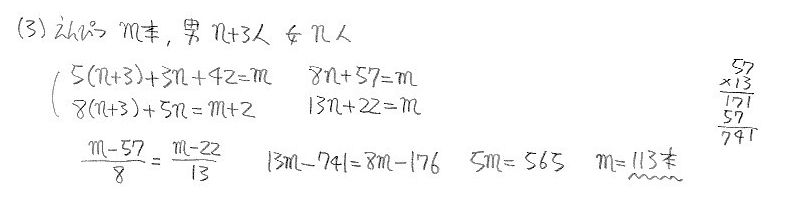 (3) えんぴつ m本, 男 n+3人 女 n人
5(n+3)+3n+42=m 8n+57=m
8(n+3)+5n=m+2 13n+22=m
57
×13
171
57
741
m-57/8 = m-22/13 13m-741=8m-176 5m=565 m=113本